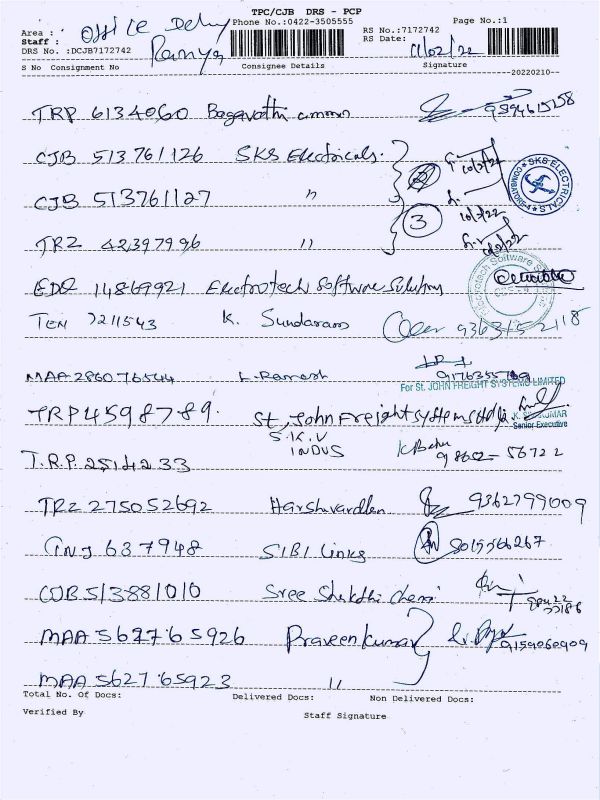 TPC/CJB DRS - PCP
Phone No.:0422-3505555
Page No.:1
Area : Office Delvy
Staff : Ramya
RS No.:7172742
RS Date: 11/02/22
DRS No. :DCJB7172742
S No Consignment No Consignee Details Signature
20220210
TRP 6134060 Bagavathi amman
CJB 513761126 SKS Electricals.
10/2/22
CJB 513761127 "
3
10/2/22
TRZ 42397996 "
10/2/22
SKS ELECTRICALS
EDS 14869921 Electrotech Software Solution
TEN 7211543 K. Sundaram 9363152118
MAA 286076544 L. Ramesh 9176355769
For St. JOHN FREIGHT SYSTEMS LIMITED
TRP 4598789. St, John Freight systems ltd
Senior Executive
S.K.V
INDUS
T.R.P. 2514233 K Babu 98652-56722
TRZ 275052692 Harshvardhen 9362799009
637948 SIBI Links 8015566267
CJB 513881010 Sree Shakthi Chemi
MAA 562765926 Praveen kumar 9159060909
MAA 562765923 "
Total No. Of Docs: Delivered Docs: Non Delivered Docs:
Verified By Staff Signature